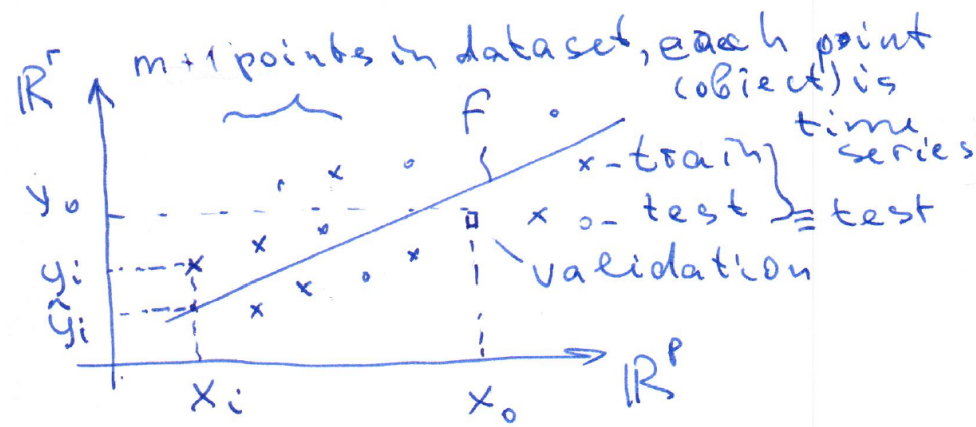 m+1 points in dataset, each point
(object) is
time
series
ℝʳ
f
x - train
o - test } ≡ test
y₀
validation
yᵢ
ŷᵢ
xᵢ
x₀
ℝᵖ